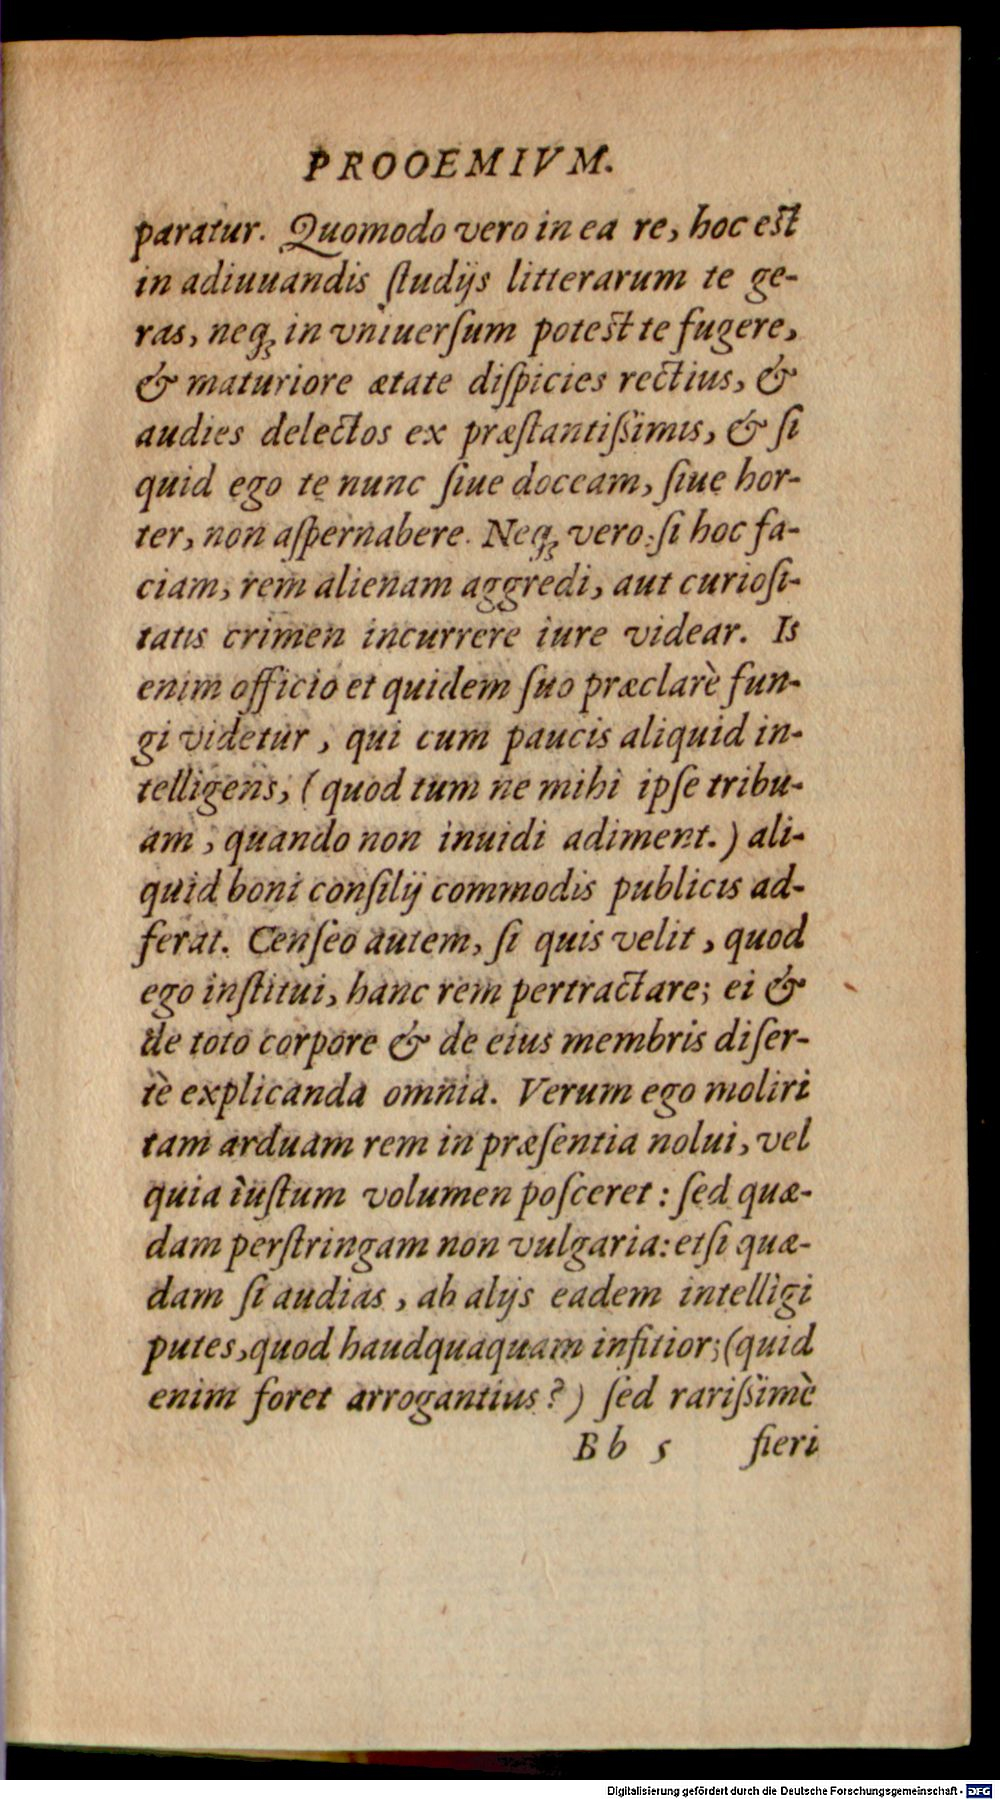 PROOEMIVM.
paratur. Quomodo vero in ea re, hoc est
in adiuuandis ſtudijs litterarum te ge-
ras, neq; in vniuerſum potest te fugere,
& maturiore ætate diſpicies rectius, &
audies delectos ex præſtantiſſimis, & ſi
quid ego te nunc ſiue doceam, ſiue hor-
ter, non aſpernabere. Neq; vero ſi hoc fa-
ciam, rem alienam aggredi, aut curioſi-
tatis crimen incurrere iure videar. Is
enim officio et quidem ſuo præclarè fun-
gi videtur, qui cum paucis aliquid in-
telligens, (quod tum ne mihi ipſe tribu-
am, quando non inuidi adiment.) ali-
quid boni conſilij commodis publicis ad-
ferat. Cenſeo autem, ſi quis velit, quod
ego inſtitui, hanc rem pertractare; ei &
de toto corpore & de eius membris diſer-
tè explicanda omnia. Verum ego moliri
tam arduam rem in præſentia nolui, vel
quia iuſtum volumen poſceret: ſed quæ-
dam perſtringam non vulgaria: etſi quæ-
dam ſi audias, ab alijs eadem intelligi
putes, quod haudquaquam infitior; (quid
enim foret arrogantius?) ſed rariſſimè
Bb 5 fieri
Digitalisierung gefördert durch die Deutsche Forschungsgemeinschaft - DFG